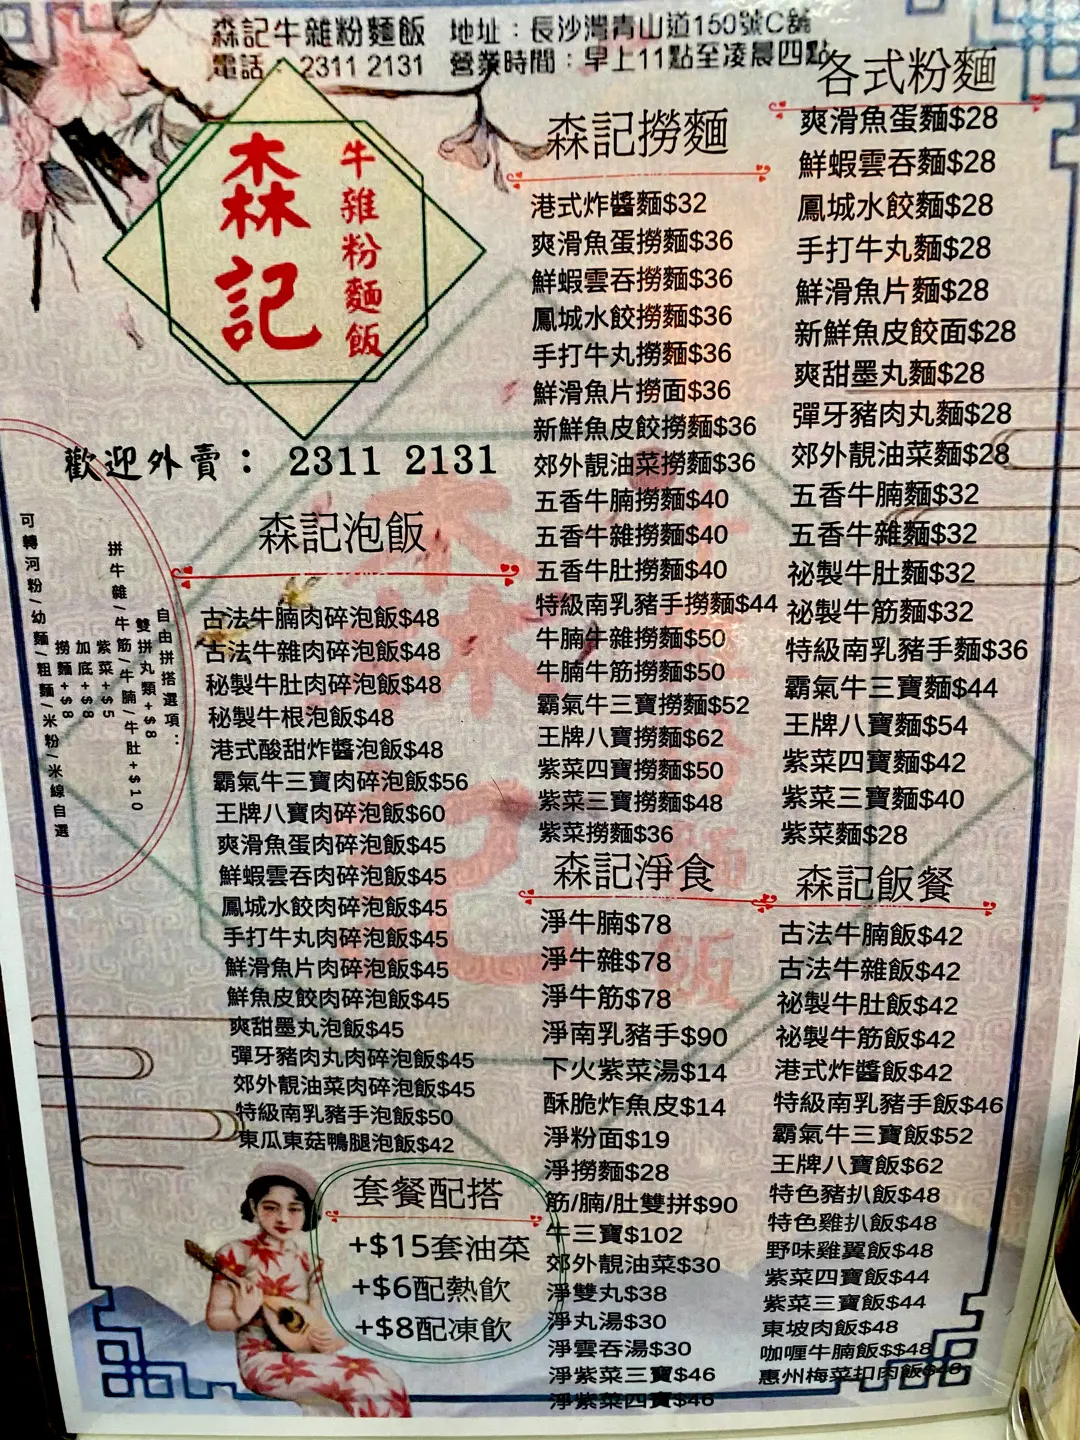 森記牛雜粉麵飯
地址：長沙灣青山道150號C舖
電話：2311 2131
營業時間：早上11點至凌晨四點
森記
牛雜粉麵飯
歡迎外賣：2311 2131
可轉河粉/幼麵/粗麵/米粉/米線自選
自由拼搭選項：
雙拼丸類+$8
拼牛雜/牛筋/牛腩/牛肚+$10
紫菜+$5
加底+$8
撈麵+$8
森記泡飯
古法牛腩肉碎泡飯$48
古法牛雜肉碎泡飯$48
秘製牛肚肉碎泡飯$48
秘製牛根泡飯$48
港式酸甜炸醬泡飯$48
霸氣牛三寶肉碎泡飯$56
王牌八寶肉碎泡飯$60
爽滑魚蛋肉碎泡飯$45
鮮蝦雲吞肉碎泡飯$45
鳳城水餃肉碎泡飯$45
手打牛丸肉碎泡飯$45
鮮滑魚片肉碎泡飯$45
鮮魚皮餃肉碎泡飯$45
爽甜墨丸泡飯$45
彈牙豬肉丸肉碎泡飯$45
郊外靚油菜肉碎泡飯$45
特級南乳豬手泡飯$50
東瓜東菇鴨腿泡飯$42
套餐配搭
+$15套油菜
+$6配熱飲
+$8配凍飲
森記撈麵
港式炸醬麵$32
爽滑魚蛋撈麵$36
鮮蝦雲吞撈麵$36
鳳城水餃撈麵$36
手打牛丸撈麵$36
鮮滑魚片撈面$36
新鮮魚皮餃撈麵$36
郊外靚油菜撈麵$36
五香牛腩撈麵$40
五香牛雜撈麵$40
五香牛肚撈麵$40
特級南乳豬手撈麵$44
牛腩牛雜撈麵$50
牛腩牛筋撈麵$50
霸氣牛三寶撈麵$52
王牌八寶撈麵$62
紫菜四寶撈麵$50
紫菜三寶撈麵$48
紫菜撈麵$36
森記淨食
淨牛腩$78
淨牛雜$78
淨牛筋$78
淨南乳豬手$90
下火紫菜湯$14
酥脆炸魚皮$14
淨粉面$19
淨撈麵$28
筋/腩/肚雙拼$90
牛三寶$102
郊外靚油菜$30
淨雙丸$38
淨丸湯$30
淨雲吞湯$30
淨紫菜三寶$46
淨紫菜四寶$46
各式粉麵
爽滑魚蛋麵$28
鮮蝦雲吞麵$28
鳳城水餃麵$28
手打牛丸麵$28
鮮滑魚片麵$28
新鮮魚皮餃面$28
爽甜墨丸麵$28
彈牙豬肉丸麵$28
郊外靚油菜麵$28
五香牛腩麵$32
五香牛雜麵$32
祕製牛肚麵$32
祕製牛筋麵$32
特級南乳豬手麵$36
霸氣牛三寶麵$44
王牌八寶麵$54
紫菜四寶麵$42
紫菜三寶麵$40
紫菜麵$28
森記飯餐
古法牛腩飯$42
古法牛雜飯$42
祕製牛肚飯$42
祕製牛筋飯$42
港式炸醬飯$42
特級南乳豬手飯$46
霸氣牛三寶飯$52
王牌八寶飯$62
特色豬扒飯$48
特色雞扒飯$48
野味雞翼飯$48
紫菜四寶飯$44
紫菜三寶飯$44
東坡肉飯$48
咖喱牛腩飯$$48
惠州梅菜扣肉飯$48